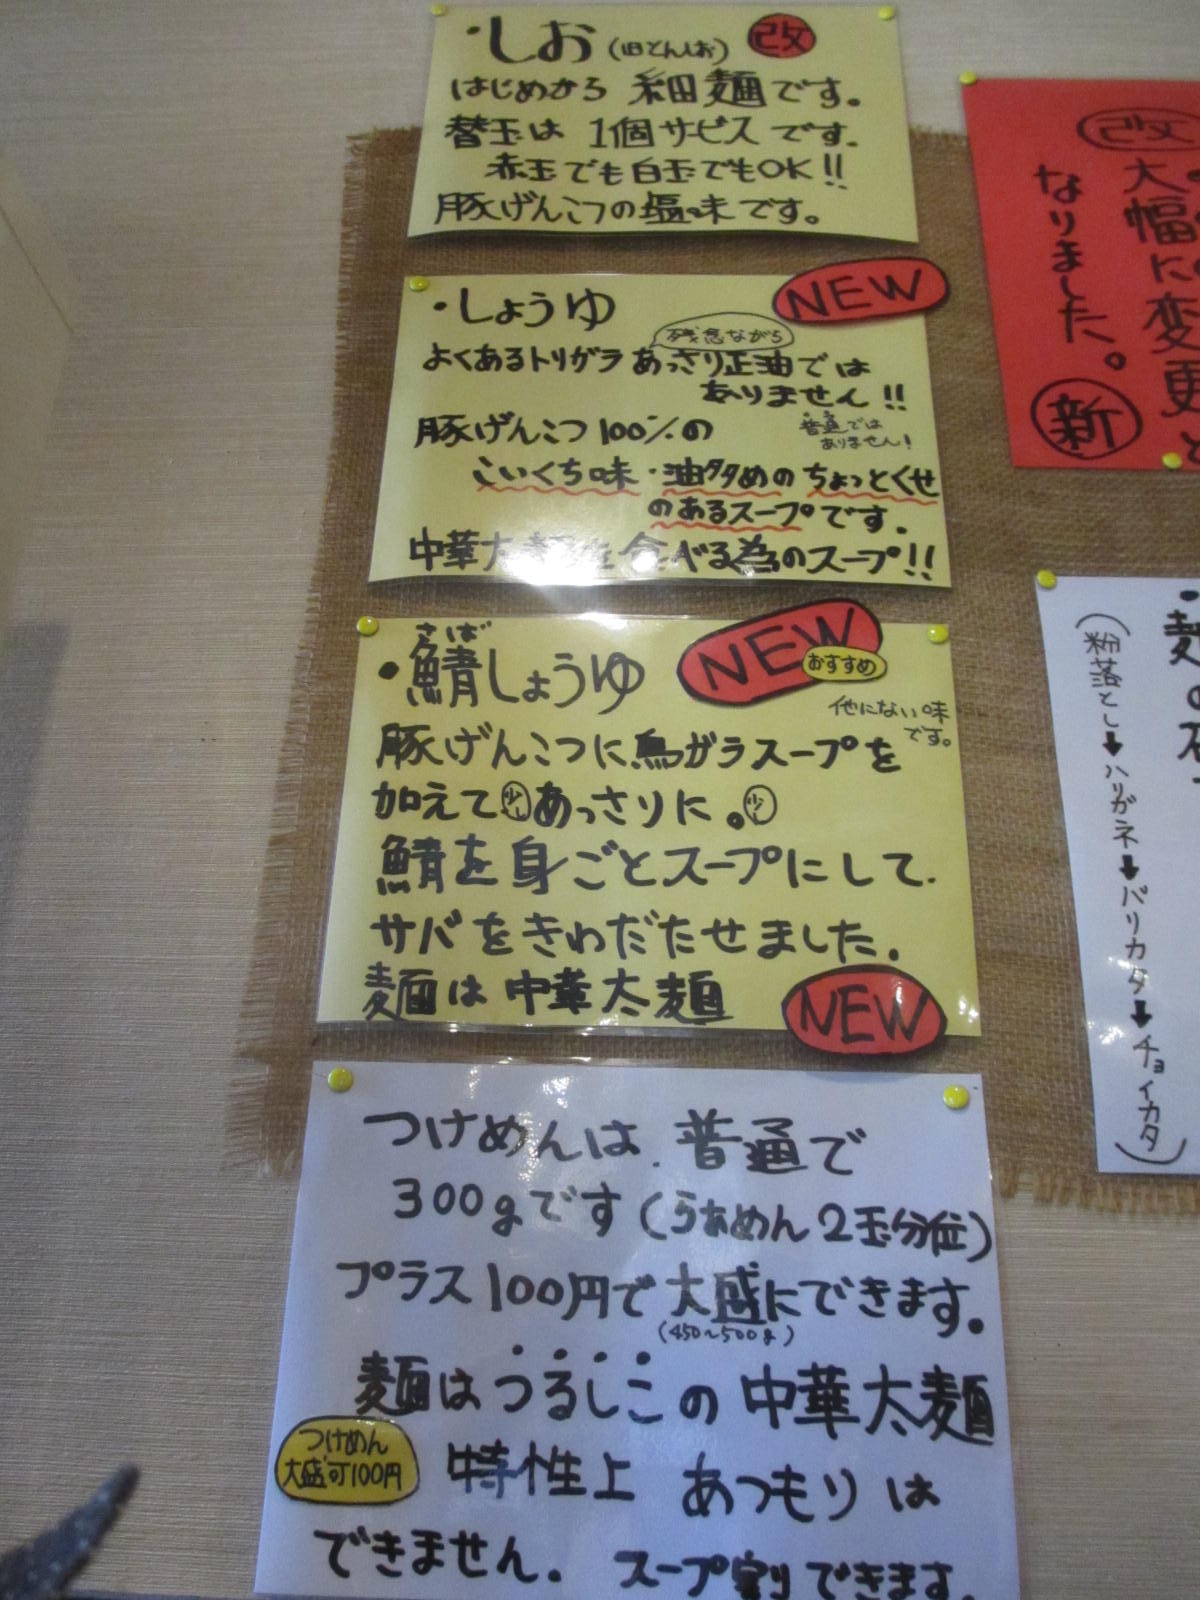 ・しお(旧とんしお) 改
はじめから 細麺です。
替玉は 1個サービスです。
赤玉でも白玉でもOK!!
豚げんこつの塩味です。
・しょうゆ NEW
残念ながら
よくあるトリガラ あっさり正油では
ありません!!
豚げんこつ100%の
普通では
ありません!
こいくち味・油多めのちょっとくせ
のあるスープです.
中華太麺を食べる為のスープ!!
さば
・鯖しょうゆ NEW おすすめ
他にない味
です。
豚げんこつに鳥がらスープを
加えて少しあっさりに。少し
鯖を身ごとスープにして.
サバをきわだたせました.
麺は中華太麺 NEW
つけめんは、普通で
300gです(らぁめん2玉分位)
プラス100円で大盛にできます。
(450〜500g)
麺はつるしこの中華太麺
つけめん
大盛可100円
特性上 あつもりは
できません. スープ割りできます.
改
大幅に変更と
なりました。
新
・麺の
(粉落とし→ハリガネ→バリカタ→チョイカタ)